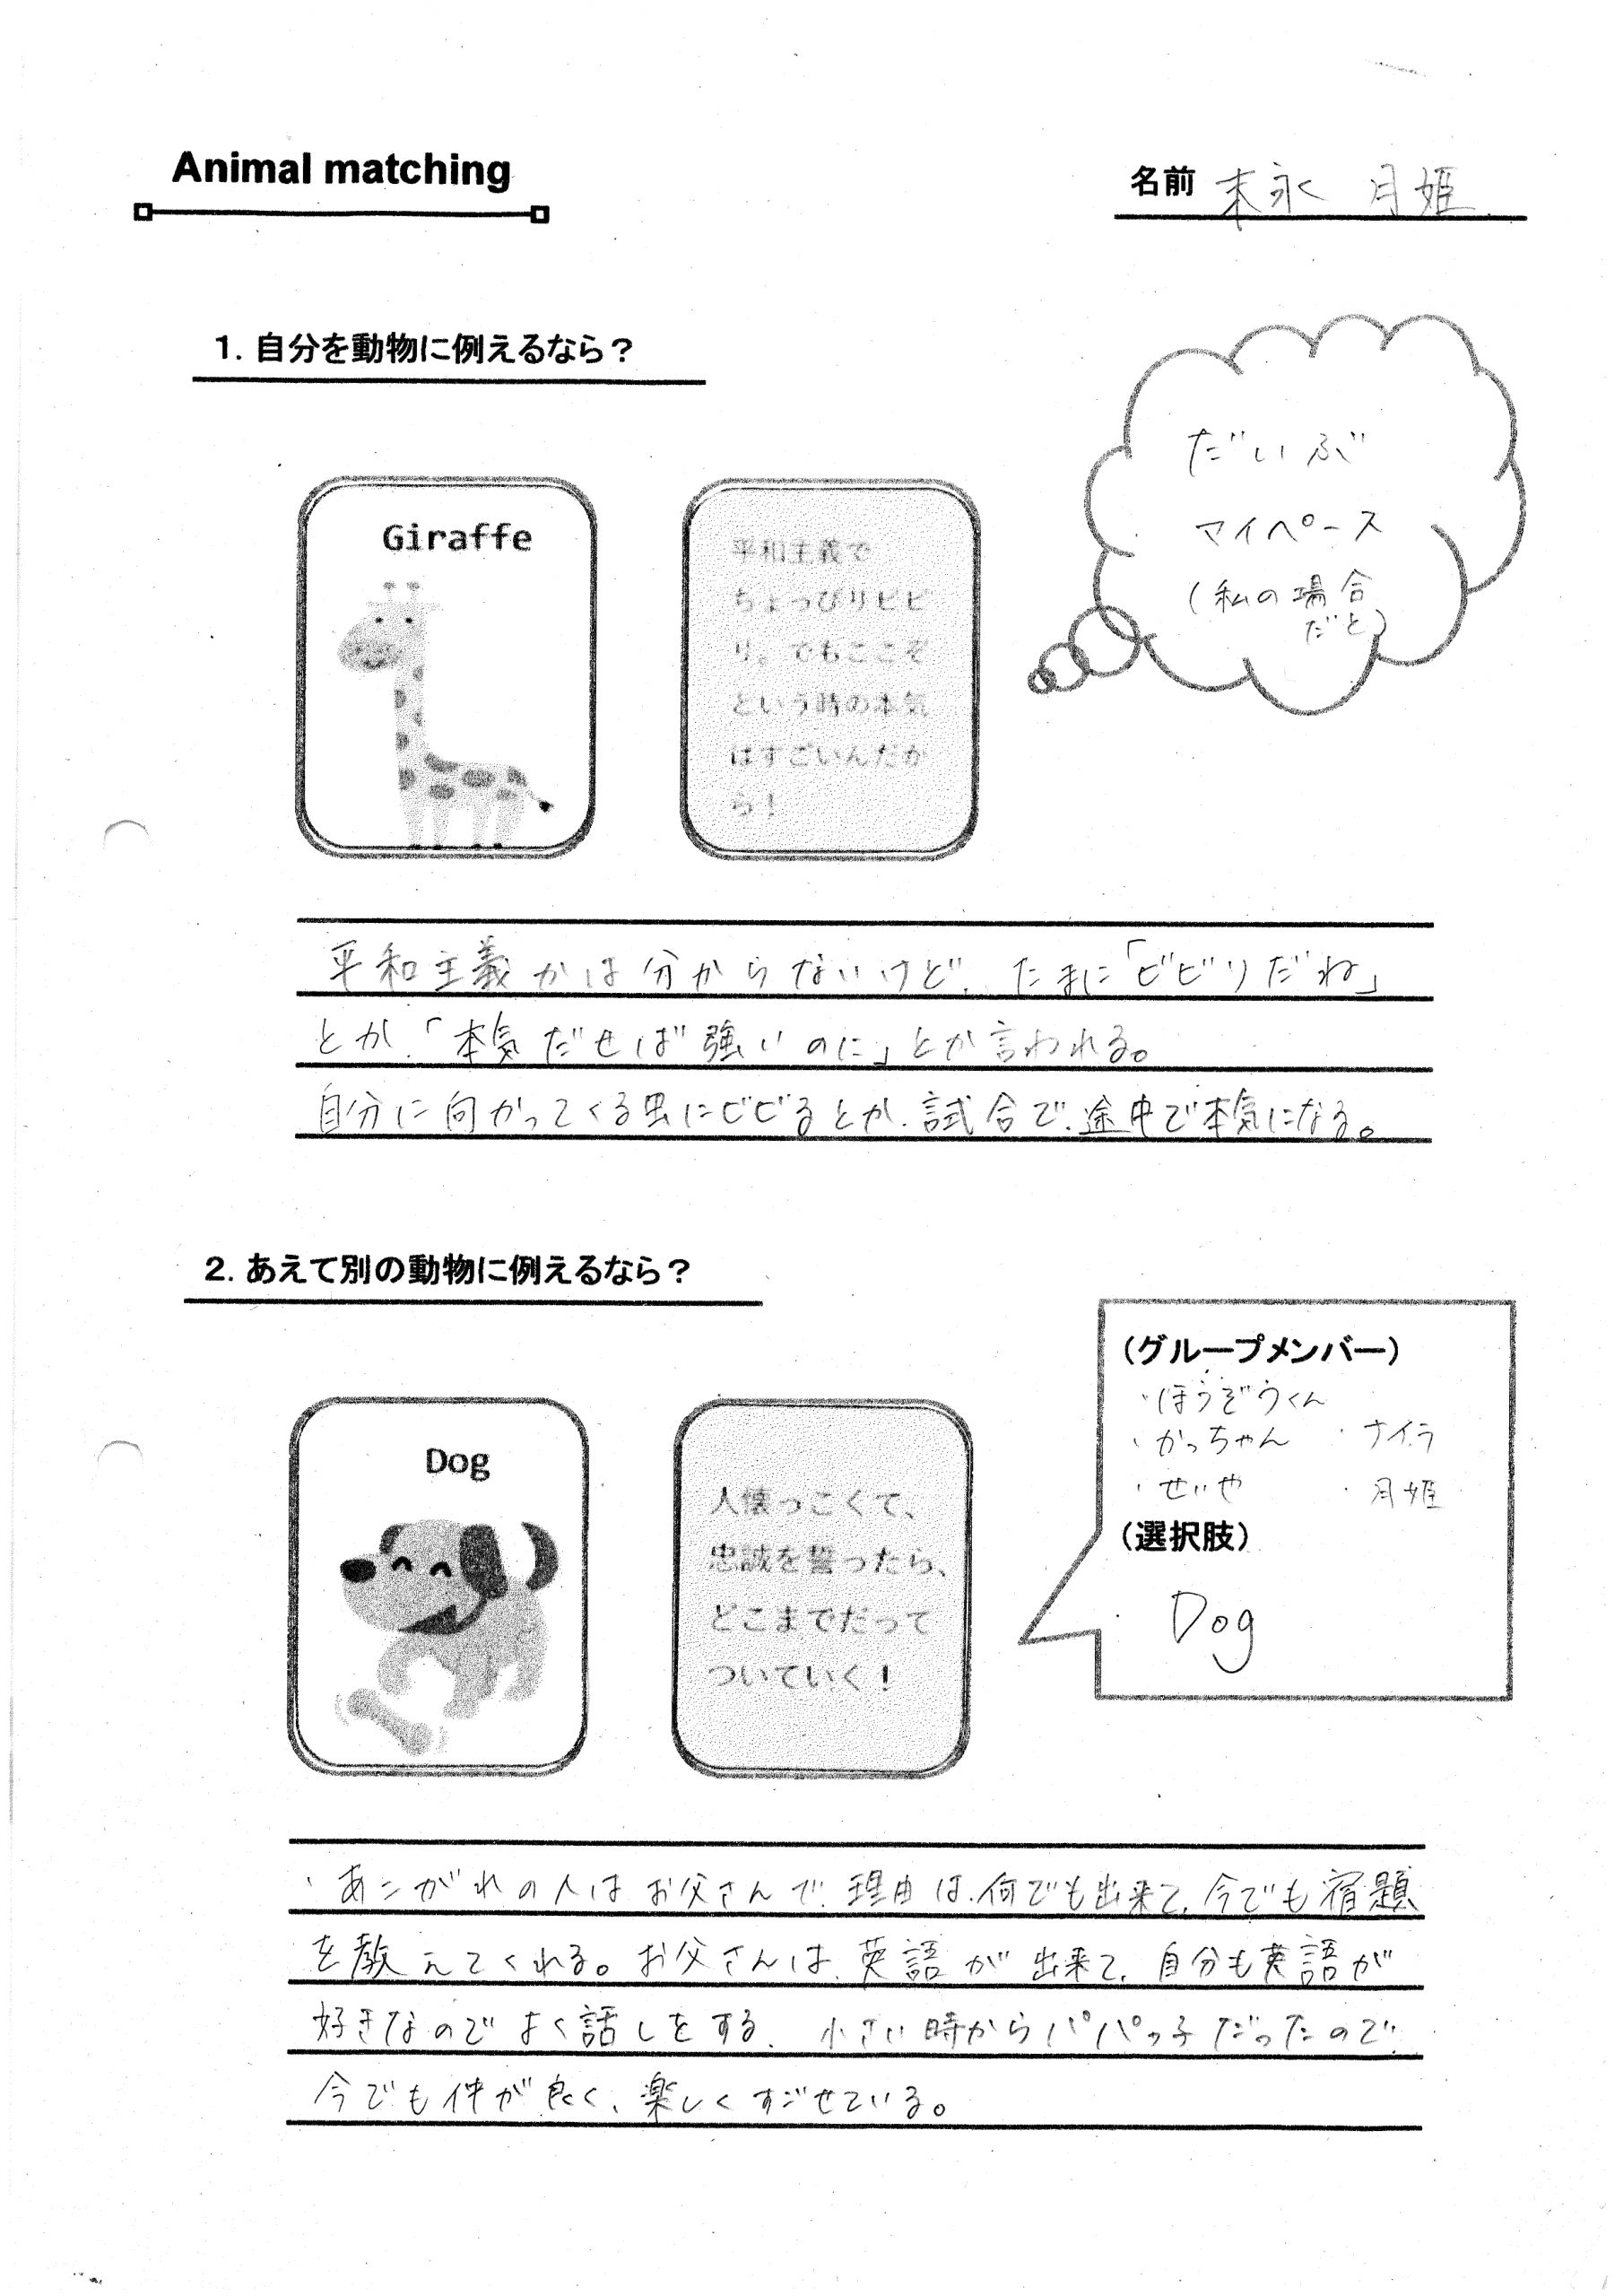 Animal matching
名前 本永 月姫
1. 自分を動物に例えるなら？
だいぶ
マイペース
(私の場合
だと)
Giraffe
平和主義で
ちょっぴりビビ
リ。でもここぞ
という時の本気
はすごいんだか
ら！
平和主義かは分からないけど、たまに「ビビりだね」
とか、「本気だせば強いのに」とか言われる。
自分に向かってくる虫にビビるとか、試合で、途中で本気になる。
2. あえて別の動物に例えるなら？
(グループメンバー)
・ほうぞうくん
・かっちゃん ・ナイラ
・せいや ・月姫
(選択肢)
Dog
Dog
人懐っこくて、
忠誠を誓ったら、
どこまでだって
ついていく！
・あこがれの人はお父さんで、理由は、何でも出来て、今でも宿題
を教えてくれる。お父さんは、英語が出来て、自分も英語が
好きなのでよく話しをする。小さい時からパパっ子だったので、
今でも仲が良く、楽しくすごせている。